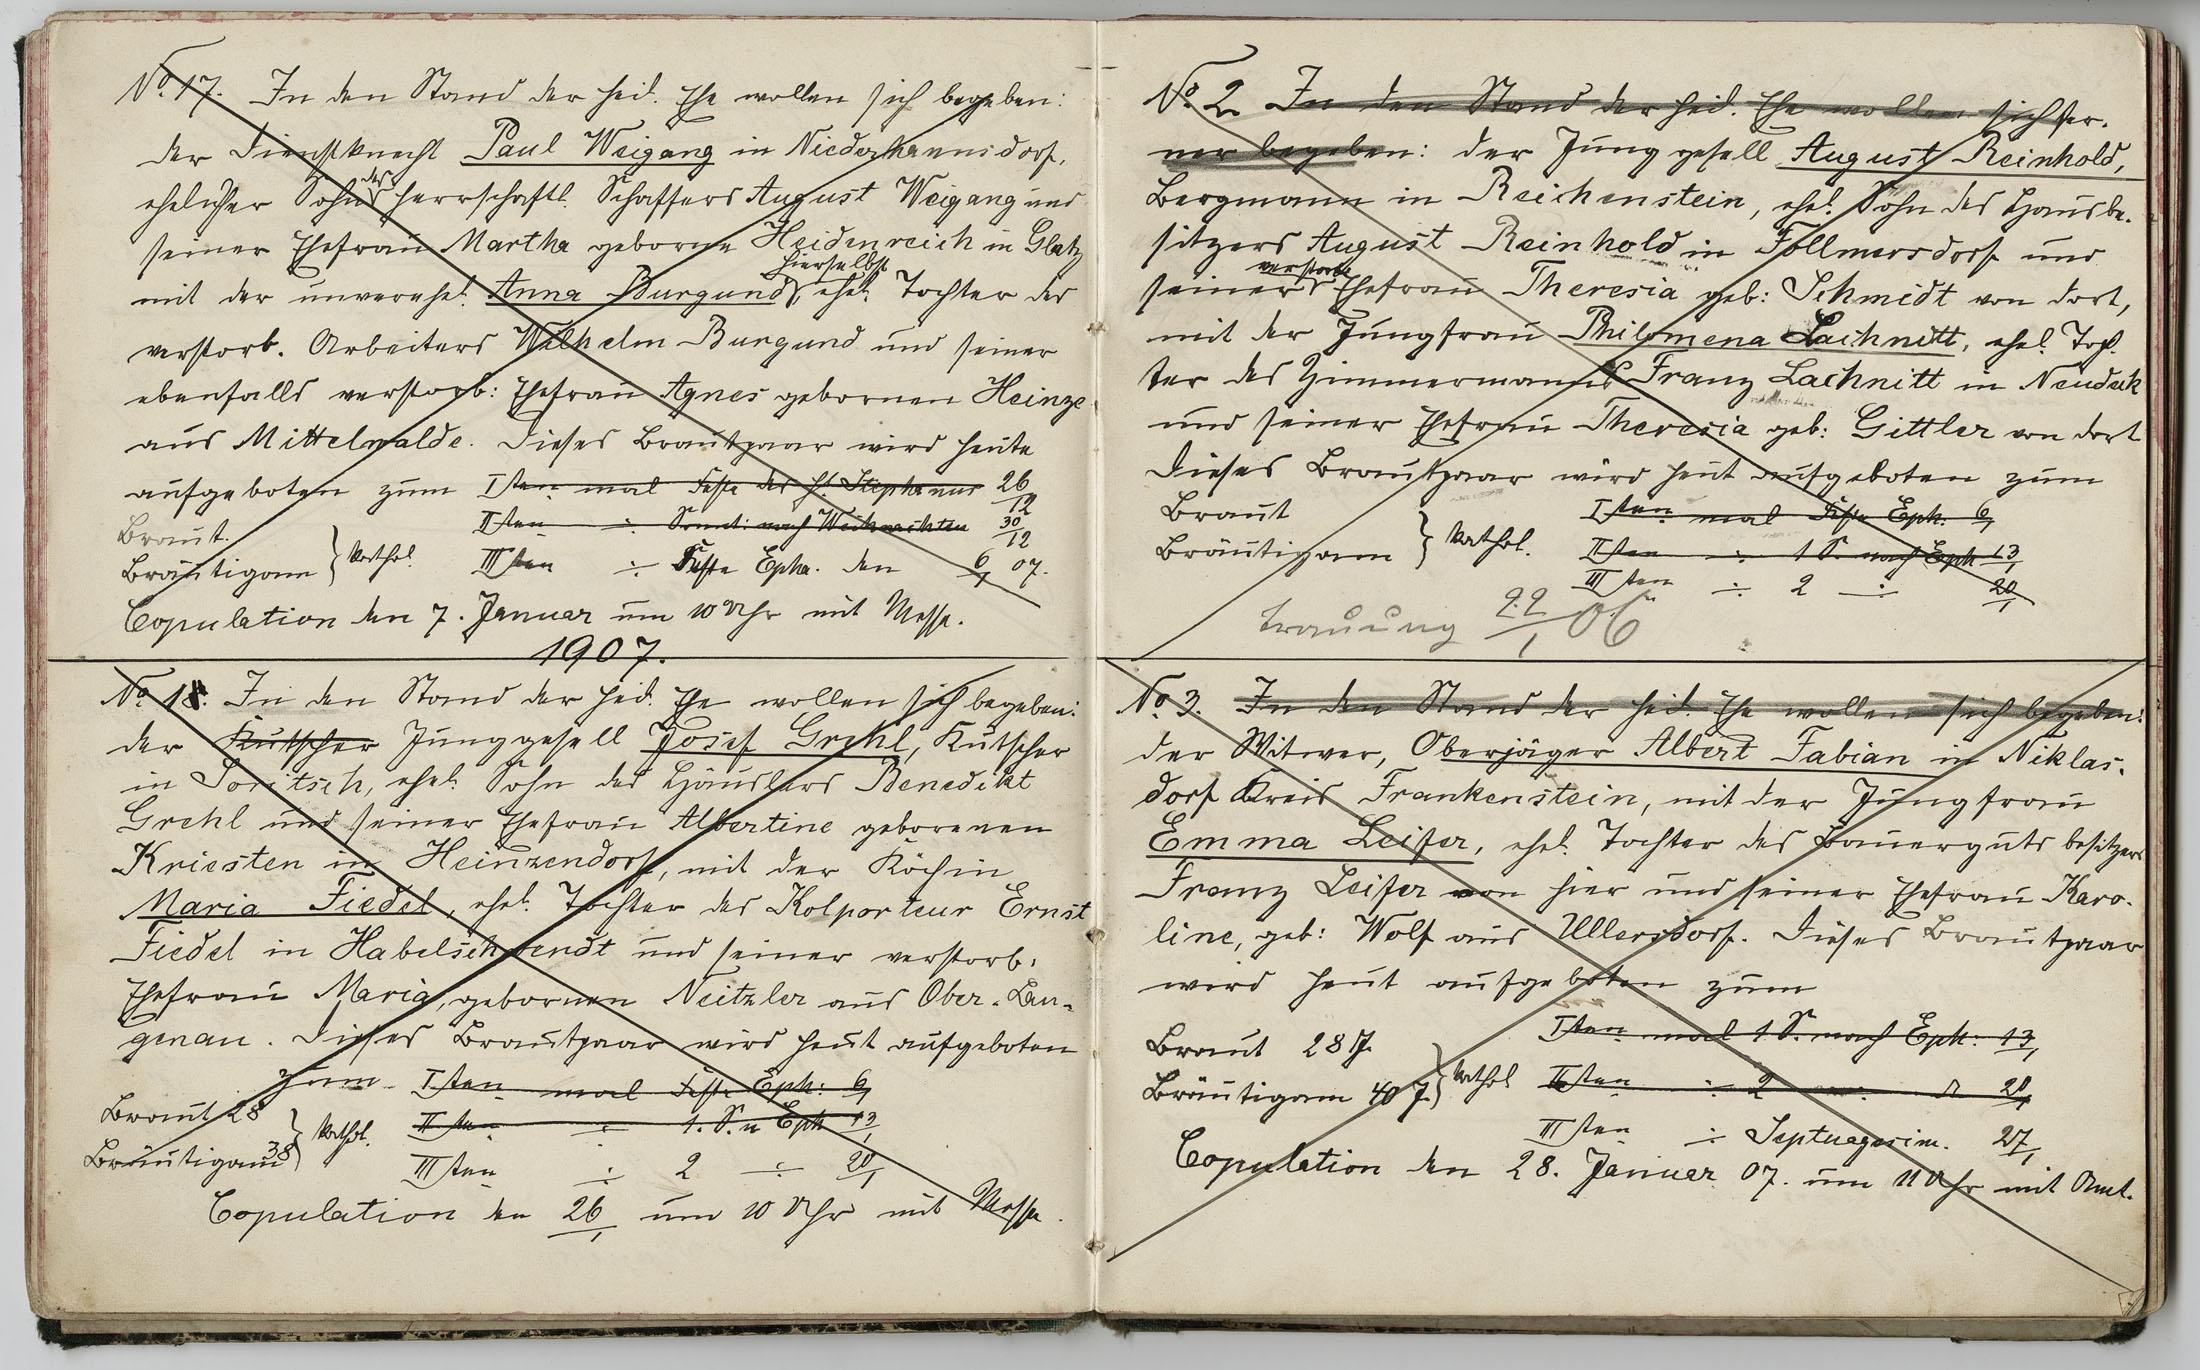 No. 17. In den Stand der heil. Ehe wollen sich begeben:
der Dienstknecht Paul Weigang in Niederhannsdorf,
ehelicher Sohn des herrschaftl. Schaffers August Weigang und
seiner Ehefrau Martha geborne Heidenreich in Glatz
mit der unverehel. Anna Burgund hierselbst, ehel. Tochter des
verstorb. Arbeiters Wilhelm Burgund und seiner
ebenfalls verstorb: Ehefrau Agnes gebornen Heinze
aus Mittelwalde. Dieses Brautpaar wird heute
aufgeboten zum Isten mal Feste des hl. Stephanus 26/12
Braut. IIten ÷ Sonnt: nach Weihnachten 30/12
Bräutigam } kathol. IIIten ÷ Feste Epha. den 6/1 07.
Copulation den 7. Januar um 10 Uhr mit Messe.
1907.
No. 18. In den Stand der heil. Ehe wollen sich begeben:
der Kutscher Junggesell Josef Grehl, Kutscher
in Soritsch, ehel. Sohn des Häuslers Benedikt
Grehl und seiner Ehefrau Albertine geborenen
Kriesten in Heinzendorf, mit der Köchin
Maria Fiedel, ehel. Tochter des Kolporteur Ernst
Fiedel in Habelschwendt und seiner verstorb:
Ehefrau Maria, gebornen Neitzler aus Ober-Lan-
genau. Dieses Brautpaar wird heut aufgeboten
zum Isten mal Feste Eph: 6/1
Braut 28 IIten ÷ 1. S. n Eph 13/1
Bräutigam 38 } kathol. IIIten ÷ 2 ÷ 20/1
Copulation den 26/1 um 10 Uhr mit Messe.
No. 2 In den Stand der heil. Ehe wollen sich fer-
ner begeben: der Junggesell August Reinhold,
Bergmann in Reichenstein, ehel. Sohn des Hausbe-
sitzers August Reinhold in Follmersdorf und
seiner verstorb. Ehefrau Theresia geb: Schmidt von dort,
mit der Jungfrau Philomena Lachnitt, ehel. Toch-
ter des Zimmermanns Franz Lachnitt in Neudek
und seiner Ehefrau Theresia geb: Gittler von dort
Dieses Brautpaar wird heut aufgeboten zum
Braut Isten mal Feste Eph: 6/1
Bräutigam } kathol. IIten ÷ 1 S. nach Eph 13/1
IIIten ÷ 2 ÷ 20/1
Trauung 22/1 06
No. 3. In den Stand der heil. Ehe wollen sich begeben:
der Witwer, Oberjäger Albert Fabian in Niklas-
dorf Kreis Frankenstein, mit der Jungfrau
Emma Leifer, ehel. Tochter des Bauerguts besitzers
Franz Leifer von hier und seiner Ehefrau Karo-
line, geb: Wolf aus Ullersdorf. Dieses Brautpaar
wird heut aufgeboten zum
Braut 28 J. Isten mal 1 S. nach Eph: 13/1
Bräutigam 40 J. } kathol IIten ÷ 2 ÷ 20/1
IIIten ÷ Septuagesim. 27/1
Copulation den 28. Januar 07. um 11 Uhr mit Amt.